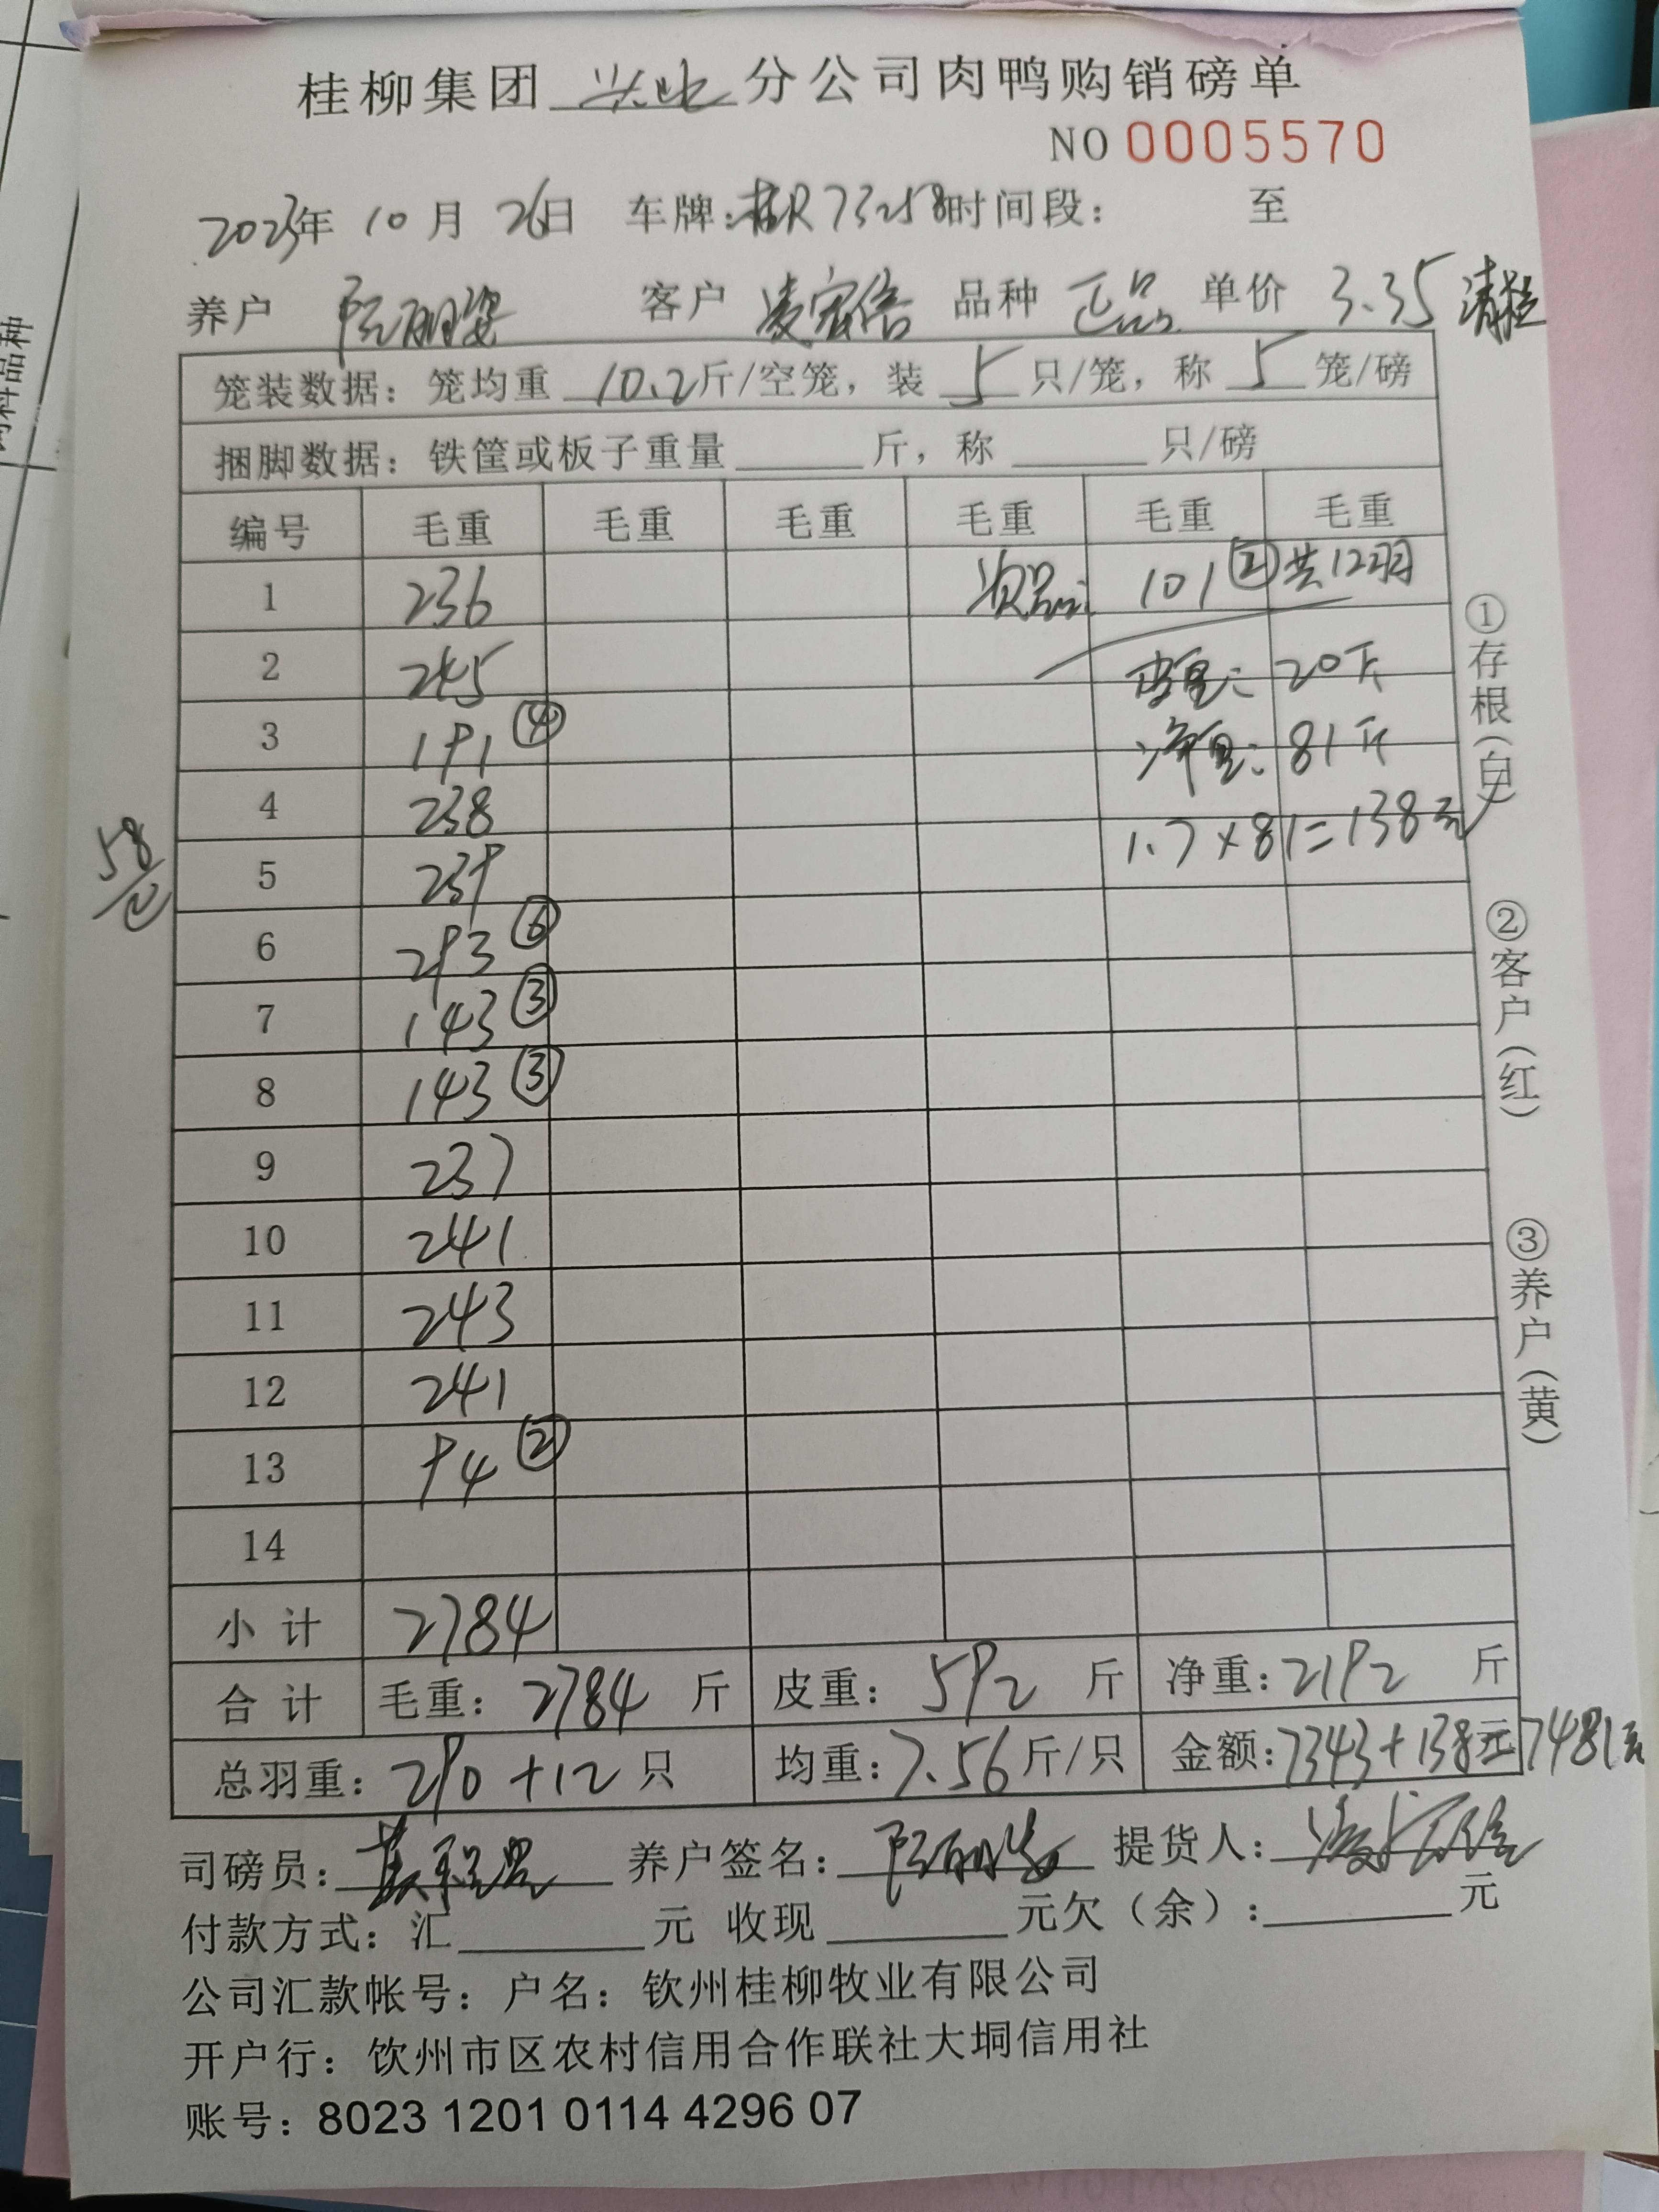 桂柳集团 兴业 分公司肉鸭购销磅单
NO 0005570
2023年 10 月 26日 车牌:桂R73258时间段: 至
养户 阮丽姿 客户 凌宏信 品种 正品 单价 3.35 清栏
笼装数据: 笼均重 10.2斤/空笼, 装 5 只/笼, 称 5 笼/磅
捆脚数据: 铁筐或板子重量 斤, 称 只/磅
编号 毛重 毛重 毛重 毛重 毛重 毛重
1 236 次品: 101② 共12羽
2 245 皮重: 20斤
3 191④ 净重: 81斤
4 238 1.7×81=138元
5 239
58仓
6 293⑥
7 143③
8 143③
9 237
10 241
11 243
12 241
13 94②
14
小计 2784
合计 毛重: 2784 斤 皮重: 592 斤 净重: 2192 斤
总羽重: 290+12 只 均重: 7.56斤/只 金额: 7343+138元 7481元
司磅员: 养户签名: 阮丽姿 提货人: 凌宏信
付款方式: 汇 元 收现 元欠(余): 元
公司汇款帐号: 户名: 钦州桂柳牧业有限公司
开户行: 饮州市区农村信用合作联社大垌信用社
账号: 8023 1201 0114 4296 07
①存根(白)
②客户(红)
③养户(黄)